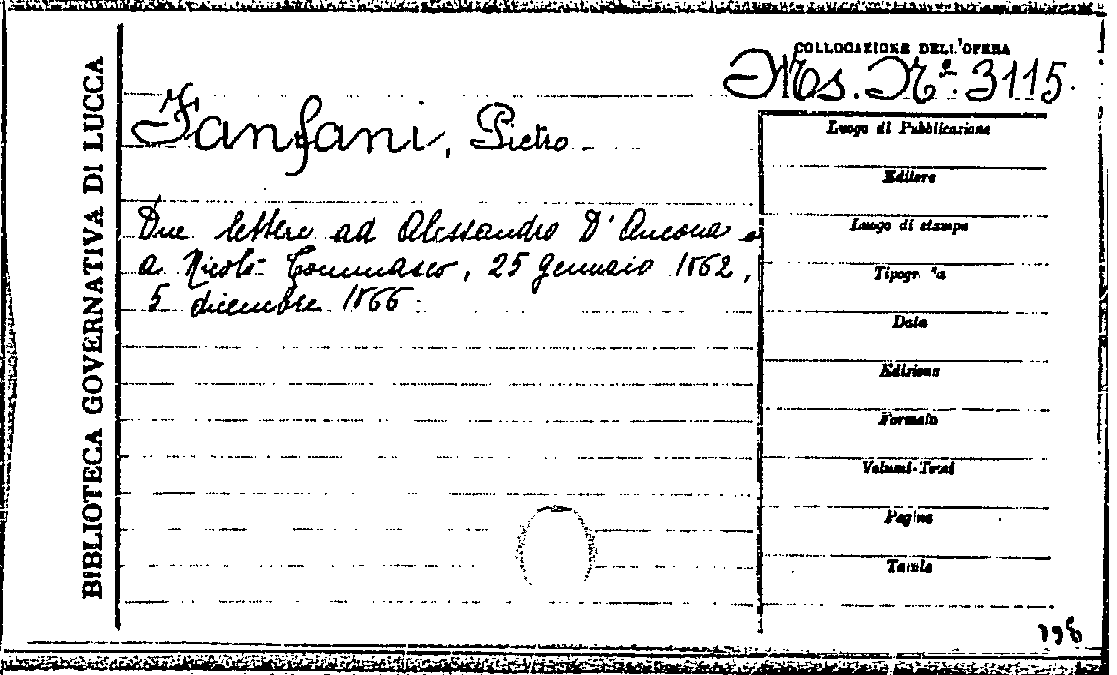 BIBLIOTECA GOVERNATIVA DI LUCCA
COLLOCAZIONE DELL'OPERA
Ms. Nº. 3115.
Fanfani, Pietro
Due lettere ad Alessandro D'Ancona e
a Nicolò Tommaseo, 25 gennaio 1862,
5 dicembre 1866.
Luogo di Pubblicazione
Editore
Luogo di stampa
Tipogr.
Data
Edizione
Formato
Volumi-Tomi
Pagine
Tavole
198